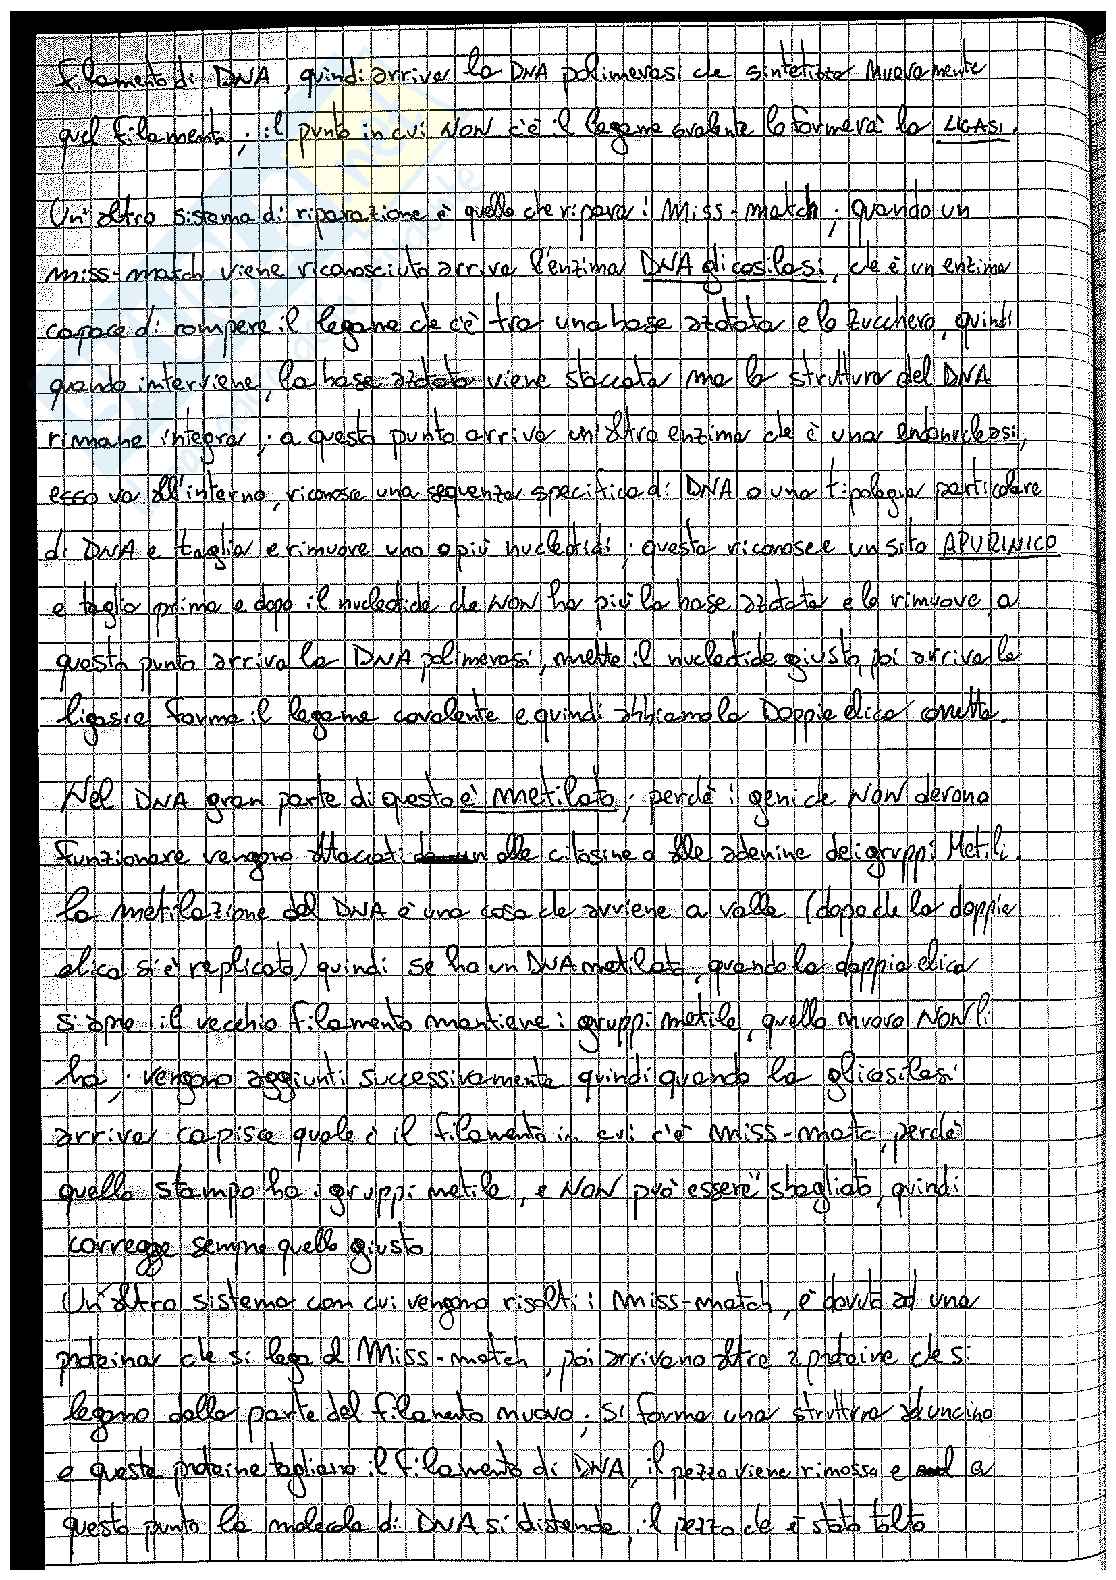 filamento di DNA, quindi arriva la DNA polimerasi che sintetizza nuovamente
quel filamento; il punto in cui NON c'è il legame covalente lo formerà la LIGASI.
Un'altro sistema di riparazione è quello che ripara i Miss-match; quando un
miss-match viene riconosciuto arriva l'enzima DNA glicosilasi, che è un enzima
capace di rompere il legame che c'è tra una base azotata e lo zucchero, quindi
quando interviene, la base azotata viene staccata ma la struttura del DNA
rimane integra; a questo punto arriva un'altro enzima che è una endonucleasi,
esso va all'interno, riconosce una sequenza specifica di DNA o una tipologia particolare
di DNA e taglia e rimuove uno o più nucleotidi; questa riconosce un sito APURINICO
e taglia prima e dopo il nucleotide che NON ha più la base azotata e lo rimuove, a
questo punto arriva la DNA polimerasi, mette il nucleotide giusto, poi arriva la
ligasi e forma il legame covalente e quindi abbiamo la Doppia elica corretta.
Nel DNA gran parte di questo è metilato; perchè i geni che NON devono
funzionare vengono attaccati alle citosine o alle adenine dei gruppi Metili.
la metilazione del DNA è una cosa che avviene a valle (dopo che la doppia
elica si è replicata) quindi se ho un DNA metilato, quando la doppia elica
si apre il vecchio filamento mantiene i gruppi metile, quello nuovo NON li
ha; vengono aggiunti successivamente quindi quando la glicosilasi
arriva capisce quale è il filamento in cui c'è miss-matc, perchè
quello stampo ha i gruppi metile, e NON può essere sbagliato, quindi
corregge sempre quello giusto
Un'altro sistema con cui vengono risolti i miss-match, è dovuto ad una
proteina che si lega al Miss-match, poi arrivano altre 2 proteine che si
legano dalla parte del filamento nuovo; si forma una struttura ad uncino
e queste proteine tagliano il filamento di DNA, il pezzo viene rimosso e a
questo punto la molecola di DNA si distende, il pezzo che è stato tolto